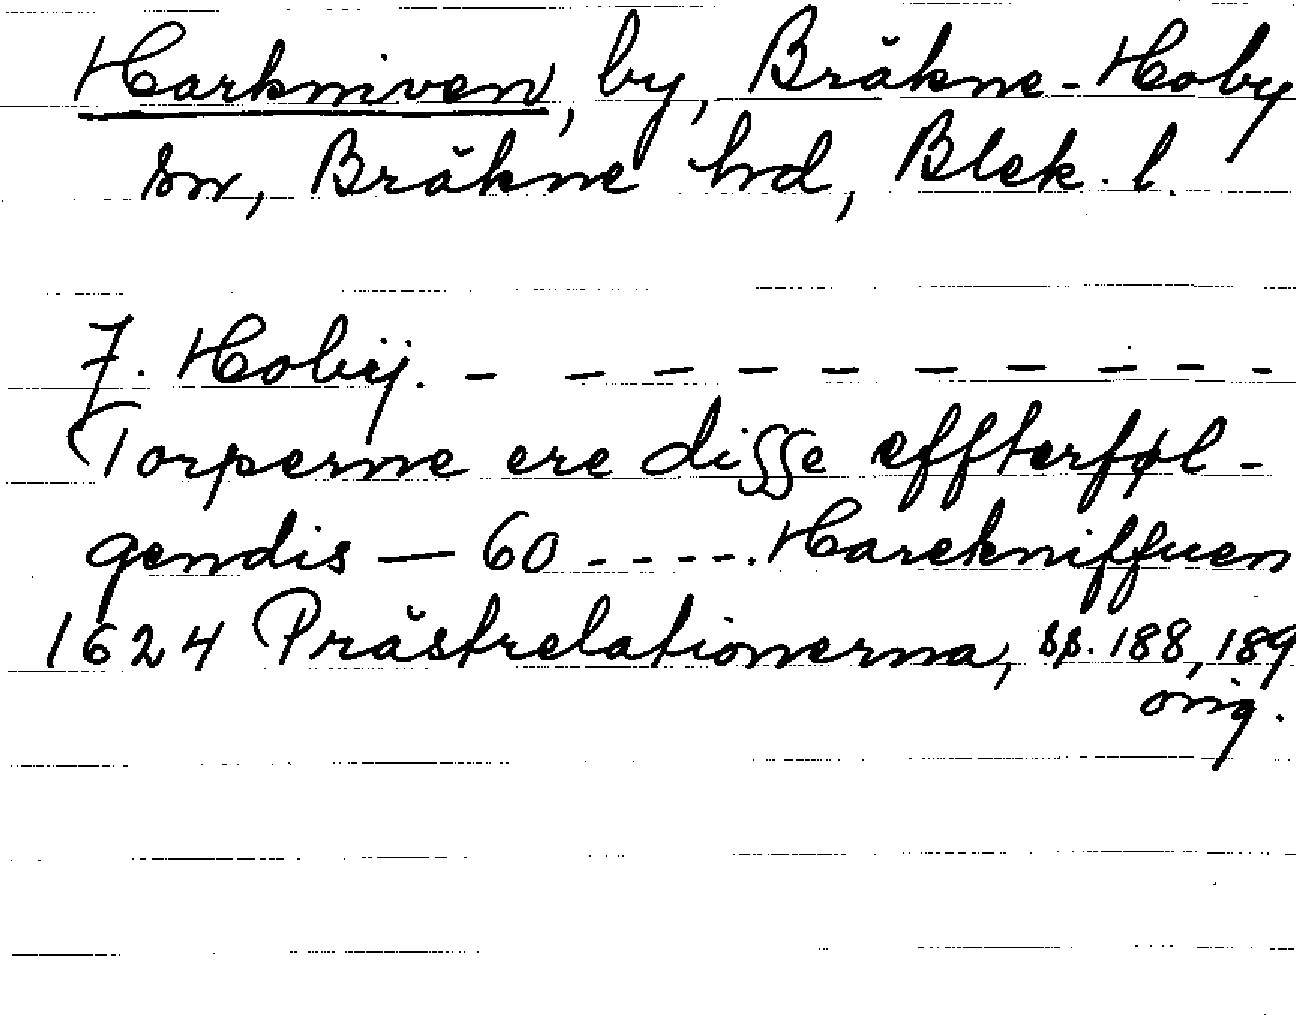 Harkniven, by, Bräkne-Hoby
sn, Bräkne hd, Blek. l.
7. Hobÿ. - - - - - - - - - -
Torperne ere disse effterføl-
gendis — 60 - - - -. Harekniffuen
1624 Prästrelationerna, sp. 188, 189
orig.